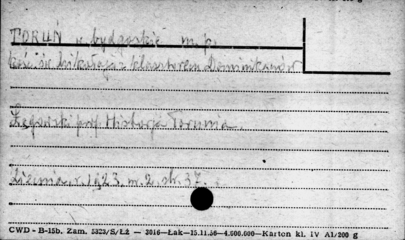 TORUŃ w. bydgoskie m. p.
kość. św. Mikołaja z klasztorem Dominikanów
prof. Historja Torunia.
Ziemia, r. 1923. m. 2. str. 37.
CWD - B-15b. Zam. 5323/S/ŁŻ — 3016—Łak—15.11.56—4.000.000—Karton kl. IV A1/200 g